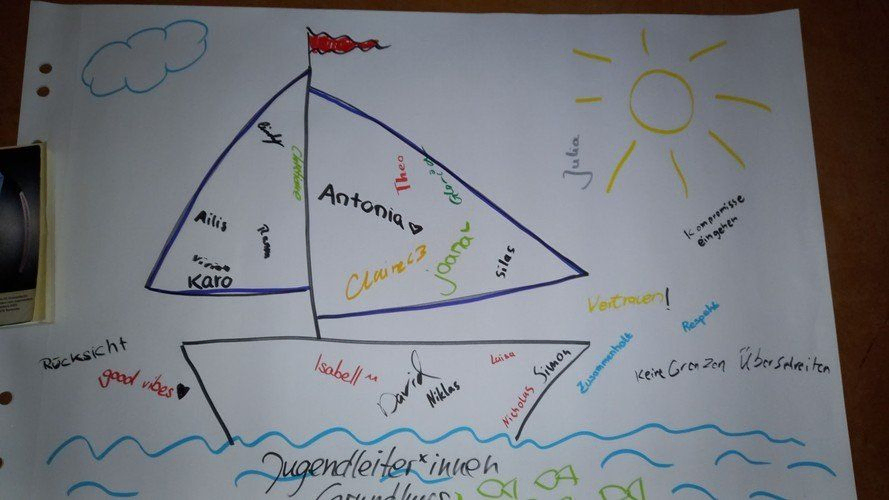 Julia
Theo
Antonia
Ailis
Karo
Claire <3
Joana
Silas
Kompromisse
eingehen
Vertrauen!
Respekt
Zusammenhalt
Keine Grenzen Überschreiten
Rücksicht
good vibes
Isabell
David
Niklas
Luisa
Nicholas
Simon
Jugendleiter*innen